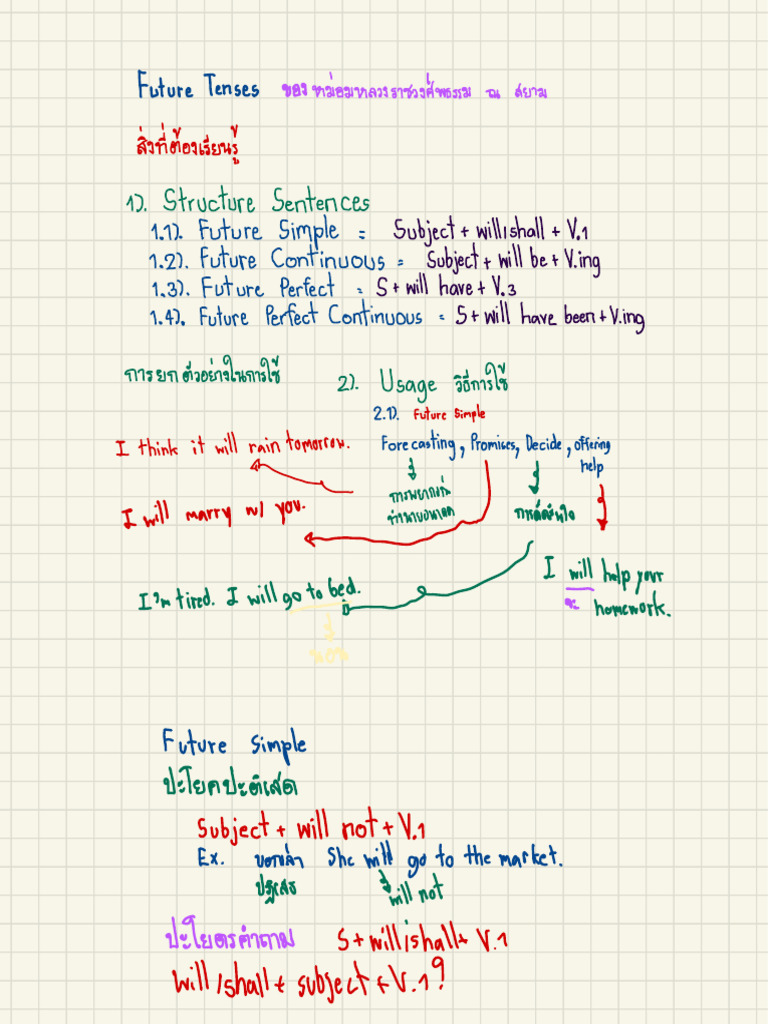 Future Tenses ของหม่อมหลวงราชวงศ์พธรรม ณ สยาม
สิ่งที่ต้องเรียนรู้
1). Structure Sentences
1.1). Future Simple = Subject + will/shall + V.1
1.2). Future Continuous = Subject + will be + V.ing
1.3). Future Perfect = S + will have + V.3
1.4). Future Perfect Continuous = S + will have been + V.ing
การยกตัวอย่างในการใช้
2). Usage วิธีการใช้
2.1). Future Simple
I think it will rain tomorrow.
Forecasting, Promises, Decide, offering
help
การพยากรณ์
ทำนายอนาคต
การตัดสินใจ
I will marry w/ you.
I will help your
จะ homework.
I'm tired. I will go to bed.
นอน
Future Simple
ปะโยคปะติเสด
Subject + will not + V.1
Ex. บอกเล่า She will go to the market.
ปฏิเสธ will not
ปะโยคคำถาม S + will/shall + V.1
Will/shall + subject + V.1?